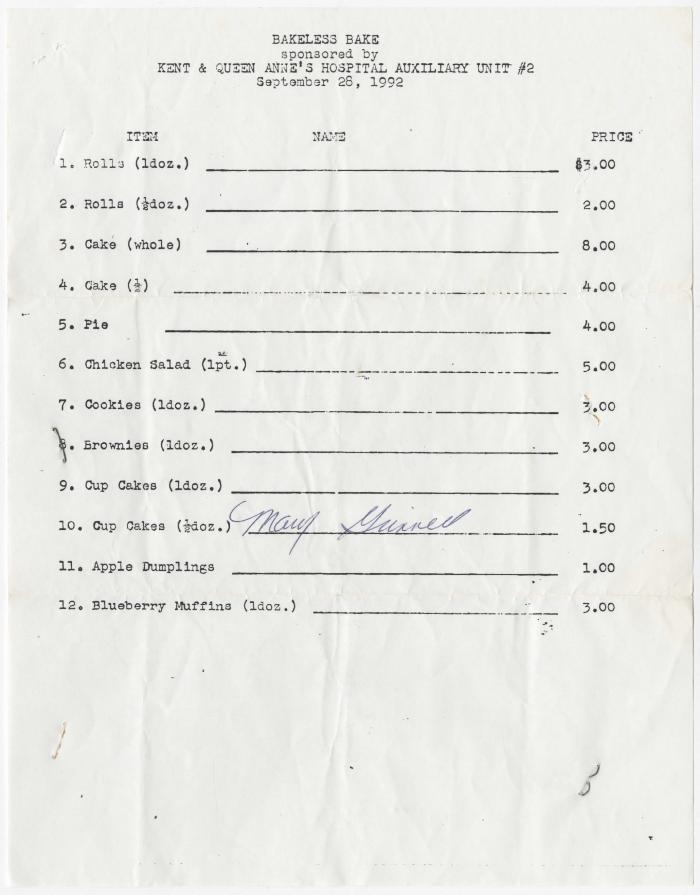 BAKELESS BAKE
sponsored by
KENT & QUEEN ANNE'S HOSPITAL AUXILIARY UNIT #2
September 28, 1992
ITEM NAME PRICE
1. Rolls (1doz.) $3.00
2. Rolls (½doz.) 2.00
3. Cake (whole) 8.00
4. Cake (½) 4.00
5. Pie 4.00
6. Chicken Salad (1pt.) 5.00
7. Cookies (1doz.) 3.00
8. Brownies (1doz.) 3.00
9. Cup Cakes (1doz.) 3.00
10. Cup Cakes (½doz.) Mary 1.50
11. Apple Dumplings 1.00
12. Blueberry Muffins (1doz.) 3.00